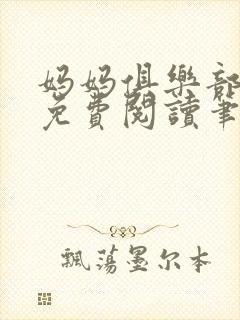 媽媽俱樂部
免費閱讀筆
飄蕩墨尔本